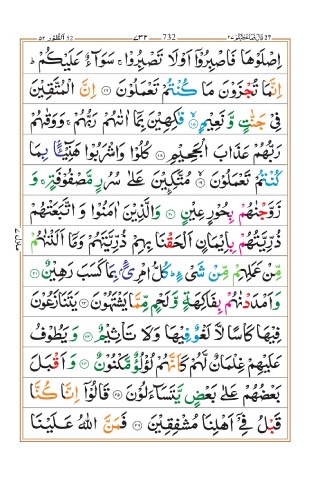 الطور ٥٢ ٧٣٢ 732 قال فما خطبكم ٢٧
اِصْلَوْهَا فَاصْبِرُوْۤا اَوْ لَا تَصْبِرُوْا ۚ سَوَآءٌ عَلَيْكُمْ ؕ
اِنَّمَا تُجْزَوْنَ مَا كُنْتُمْ تَعْمَلُوْنَ ﴿۱۶﴾ اِنَّ الْمُتَّقِيْنَ
فِيْ جَنّٰتٍ وَّ نَعِيْمٍ ﴿۱۷﴾ فٰكِهِيْنَ بِمَاۤ اٰتٰىهُمْ رَبُّهُمْ ۚ وَ وَقٰىهُمْ
رَبُّهُمْ عَذَابَ الْجَحِيْمِ ﴿۱۸﴾ كُلُوْا وَ اشْرَبُوْا هَنِيْٓئًۢا بِمَا
كُنْتُمْ تَعْمَلُوْنَ ﴿۱۹﴾ مُتَّكِـِٕيْنَ عَلٰى سُرُرٍ مَّصْفُوْفَةٍ ۚ وَ
زَوَّجْنٰهُمْ بِحُوْرٍ عِيْنٍ ﴿۲۰﴾ وَ الَّذِيْنَ اٰمَنُوْا وَ اتَّبَعَتْهُمْ
ذُرِّيَّتُهُمْ بِاِيْمَانٍ اَلْحَقْنَا بِهِمْ ذُرِّيَّتَهُمْ وَ مَاۤ اَلَتْنٰهُمْ
مِّنْ عَمَلِهِمْ مِّنْ شَيْءٍ ؕ كُلُّ امْرِئٍۭ بِمَا كَسَبَ رَهِيْنٌ ﴿۲۱﴾
وَ اَمْدَدْنٰهُمْ بِفَاكِهَةٍ وَّ لَحْمٍ مِّمَّا يَشْتَهُوْنَ ﴿۲۲﴾ يَتَنَازَعُوْنَ
فِيْهَا كَاْسًا لَّا لَغْوٌ فِيْهَا وَ لَا تَاْثِيْمٌ ﴿۲۳﴾ وَ يَطُوْفُ
عَلَيْهِمْ غِلْمَانٌ لَّهُمْ كَاَنَّهُمْ لُؤْلُؤٌ مَّكْنُوْنٌ ﴿۲۴﴾ وَ اَقْبَلَ
بَعْضُهُمْ عَلٰى بَعْضٍ يَّتَسَآءَلُوْنَ ﴿۲۵﴾ قَالُوْۤا اِنَّا كُنَّا
قَبْلُ فِيْۤ اَهْلِنَا مُشْفِقِيْنَ ﴿۲۶﴾ فَمَنَّ اللّٰهُ عَلَيْنَا